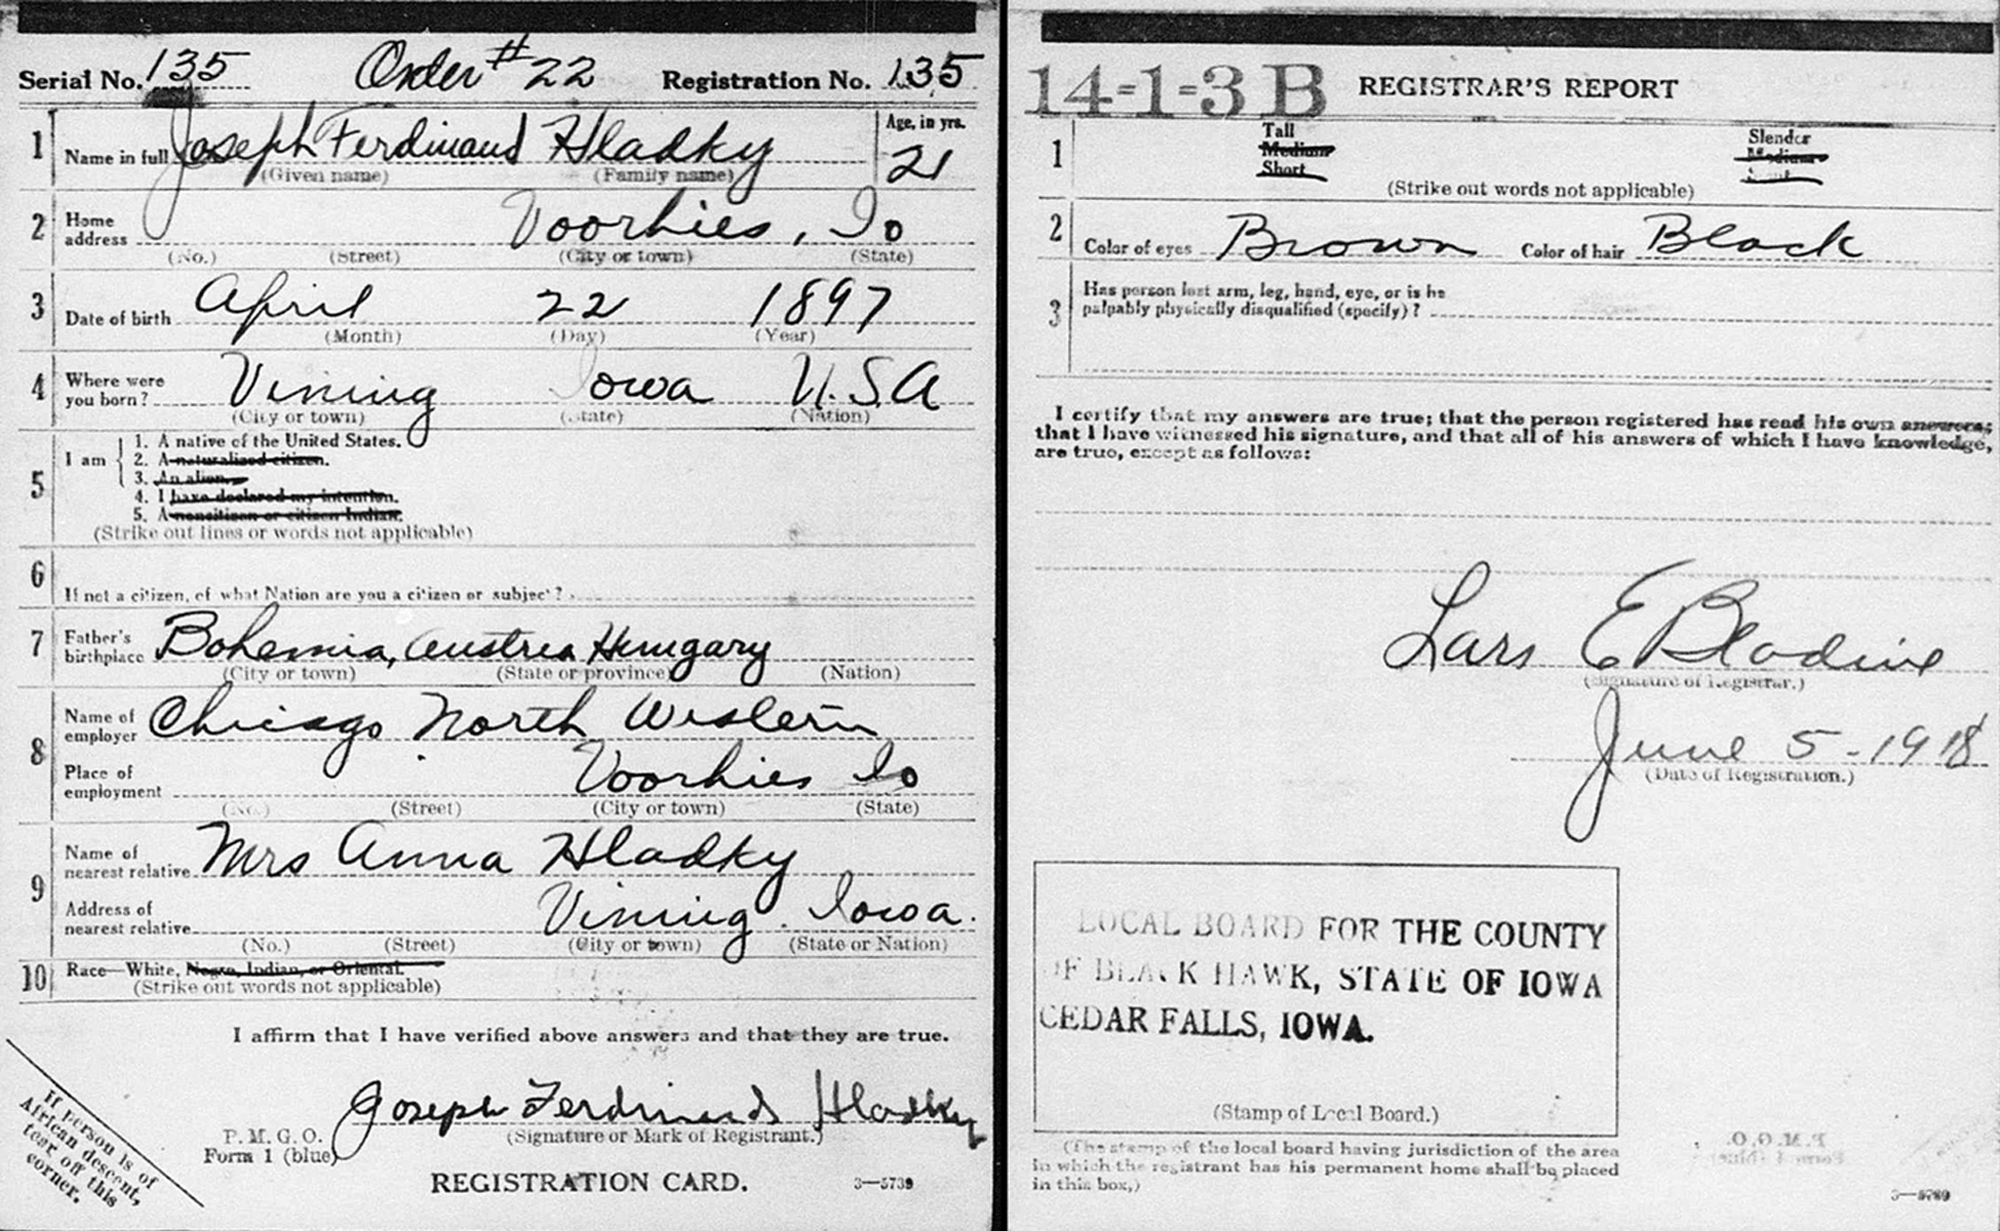 Serial No. 135 Order #22 Registration No. 135
1 Name in full Joseph Ferdinand Hladky Age, in yrs. 21
(Given name) (Family name)
2 Home address Voorhies, Io
(No.) (Street) (City or town) (State)
3 Date of birth April 22 1897
(Month) (Day) (Year)
4 Where were you born? Vining Iowa U.S.A
(City or town) (State) (Nation)
5 I am 1. A native of the United States.
2. A naturalized citizen.
3. An alien.
4. I have declared my intention.
5. A noncitizen or citizen Indian.
(Strike out lines or words not applicable)
6 If not a citizen, of what Nation are you a citizen or subject?
7 Father's birthplace Bohemia, Austria Hungary
(City or town) (State or province) (Nation)
8 Name of employer Chicago North Western
Place of employment Voorhies Io
(No.) (Street) (City or town) (State)
9 Name of nearest relative Mrs Anna Hladky
Address of nearest relative Vining. Iowa.
(No.) (Street) (City or town) (State or Nation)
10 Race—White, Negro, Indian, or Oriental.
(Strike out words not applicable)
I affirm that I have verified above answers and that they are true.
Joseph Ferdinand Hladky
(Signature or Mark of Registrant.)
P. M. G. O.
Form 1 (blue)
REGISTRATION CARD. 3—5739
If person is of
African descent,
tear off this
corner.
14-1-3 B REGISTRAR'S REPORT
1 Tall Slender
Medium Medium
Short Stout
(Strike out words not applicable)
2 Color of eyes Brown Color of hair Black
3 Has person lost arm, leg, hand, eye, or is he
palpably physically disqualified (specify)?
I certify that my answers are true; that the person registered has read his own answers;
that I have witnessed his signature, and that all of his answers of which I have knowledge,
are true, except as follows:
Lars E Bladine
(Signature of Registrar.)
June 5-1918
(Date of Registration.)
LOCAL BOARD FOR THE COUNTY
OF BLACK HAWK, STATE OF IOWA
CEDAR FALLS, IOWA.
(Stamp of Local Board.)
(The stamp of the local board having jurisdiction of the area
in which the registrant has his permanent home shall be placed
in this box.)
P.M.G.O.
Form 1 (blue)